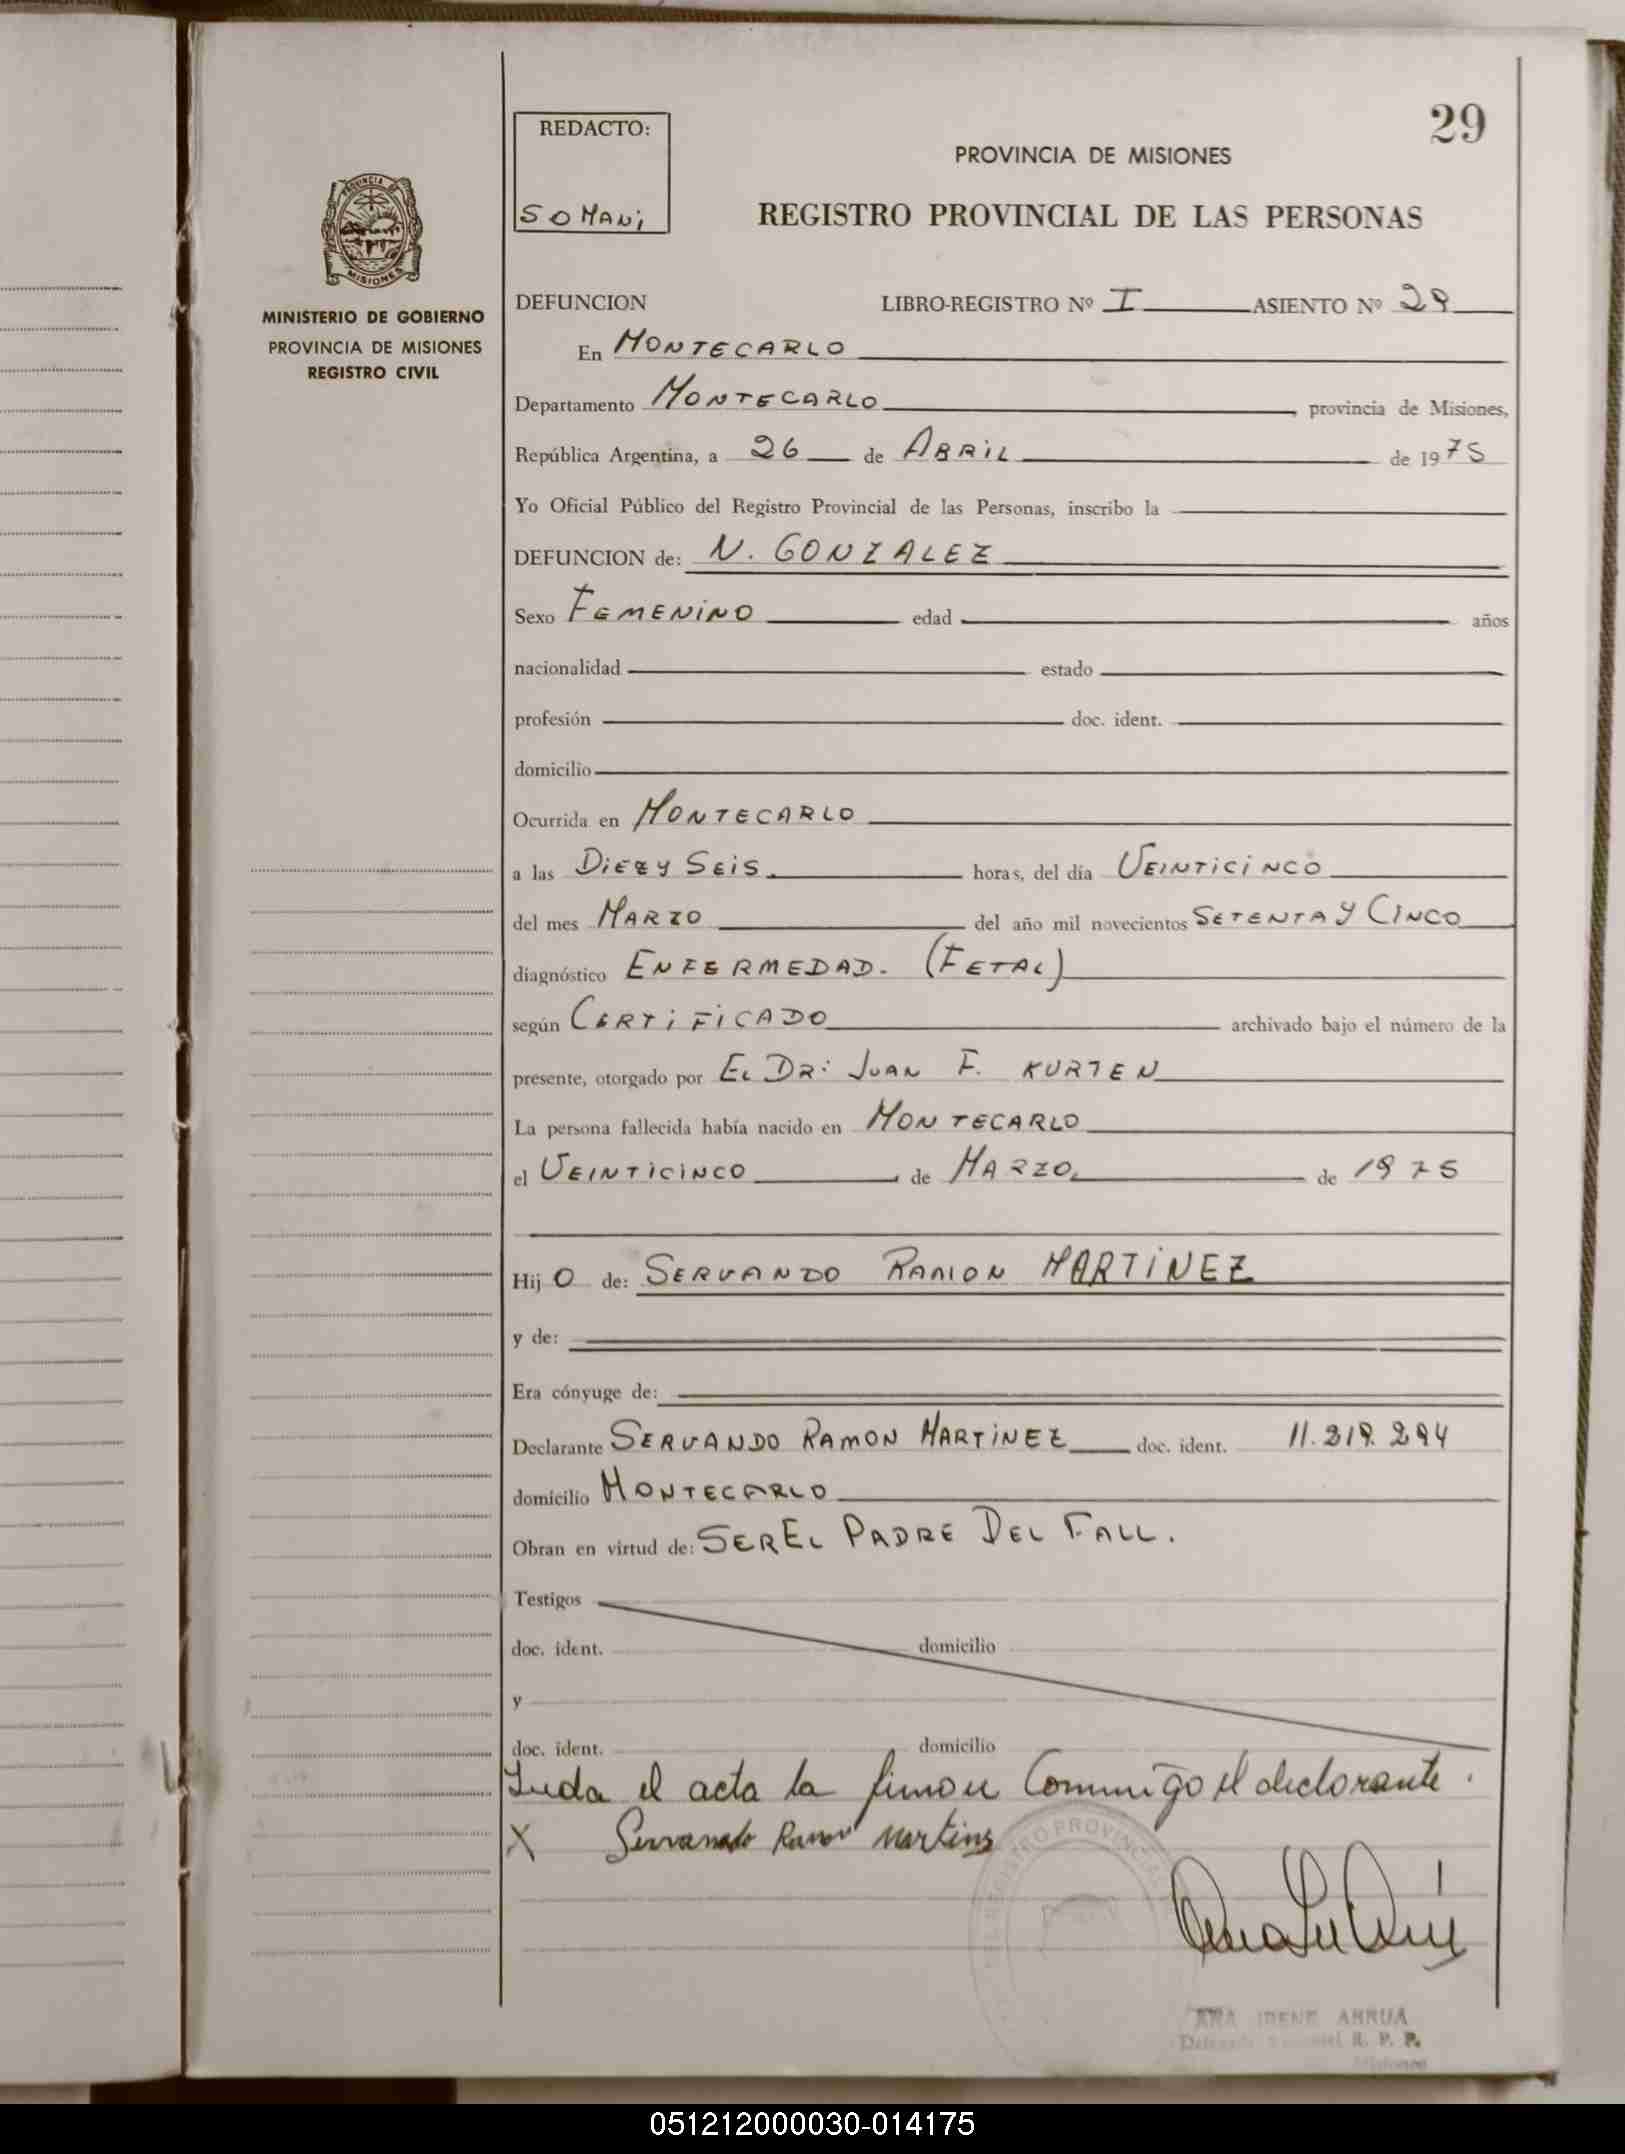 29
REDACTO:
SOMANi
PROVINCIA DE MISIONES
REGISTRO PROVINCIAL DE LAS PERSONAS
PROVINCIA DE
MISIONES
MINISTERIO DE GOBIERNO
PROVINCIA DE MISIONES
REGISTRO CIVIL
DEFUNCION LIBRO-REGISTRO Nº I ASIENTO Nº 29
En MONTECARLO
Departamento MONTECARLO, provincia de Misiones,
República Argentina, a 26 de ABRiL de 1975
Yo Oficial Público del Registro Provincial de las Personas, inscribo la
DEFUNCION de: N. GONZALEZ
Sexo FEMENiNO edad años
nacionalidad estado
profesión doc. ident.
domicilio
Ocurrida en MONTECARLO
a las DiEz y SEiS horas, del día VEINTiCiNCO
del mes MARZO del año mil novecientos SETENTA y CINCO
diagnóstico ENFERMEDAD. (FETAL)
según CERTiFiCADO archivado bajo el número de la
presente, otorgado por EL DR: JUAN F. KURTEN
La persona fallecida había nacido en MONTECARLO
el VEINTiCiNCO de MARZO de 1975
Hij O de: SERVANDO RAMON MARTiNEZ
y de:
Era cónyuge de:
Declarante SERVANDO RAMON MARTiNEZ doc. ident. 11.219.294
domicilio MONTECARLO
Obran en virtud de: SER EL PADRE DEL FALL.
Testigos
doc. ident. domicilio
y
doc. ident. domicilio
Leida el acta la firman Conmigo el declarante.
X Servando Ramon Martinz
REGISTRO PROVINCIAL
ANA IRENE ARRUA
R. P. P.
Misiones
051212000030-014175